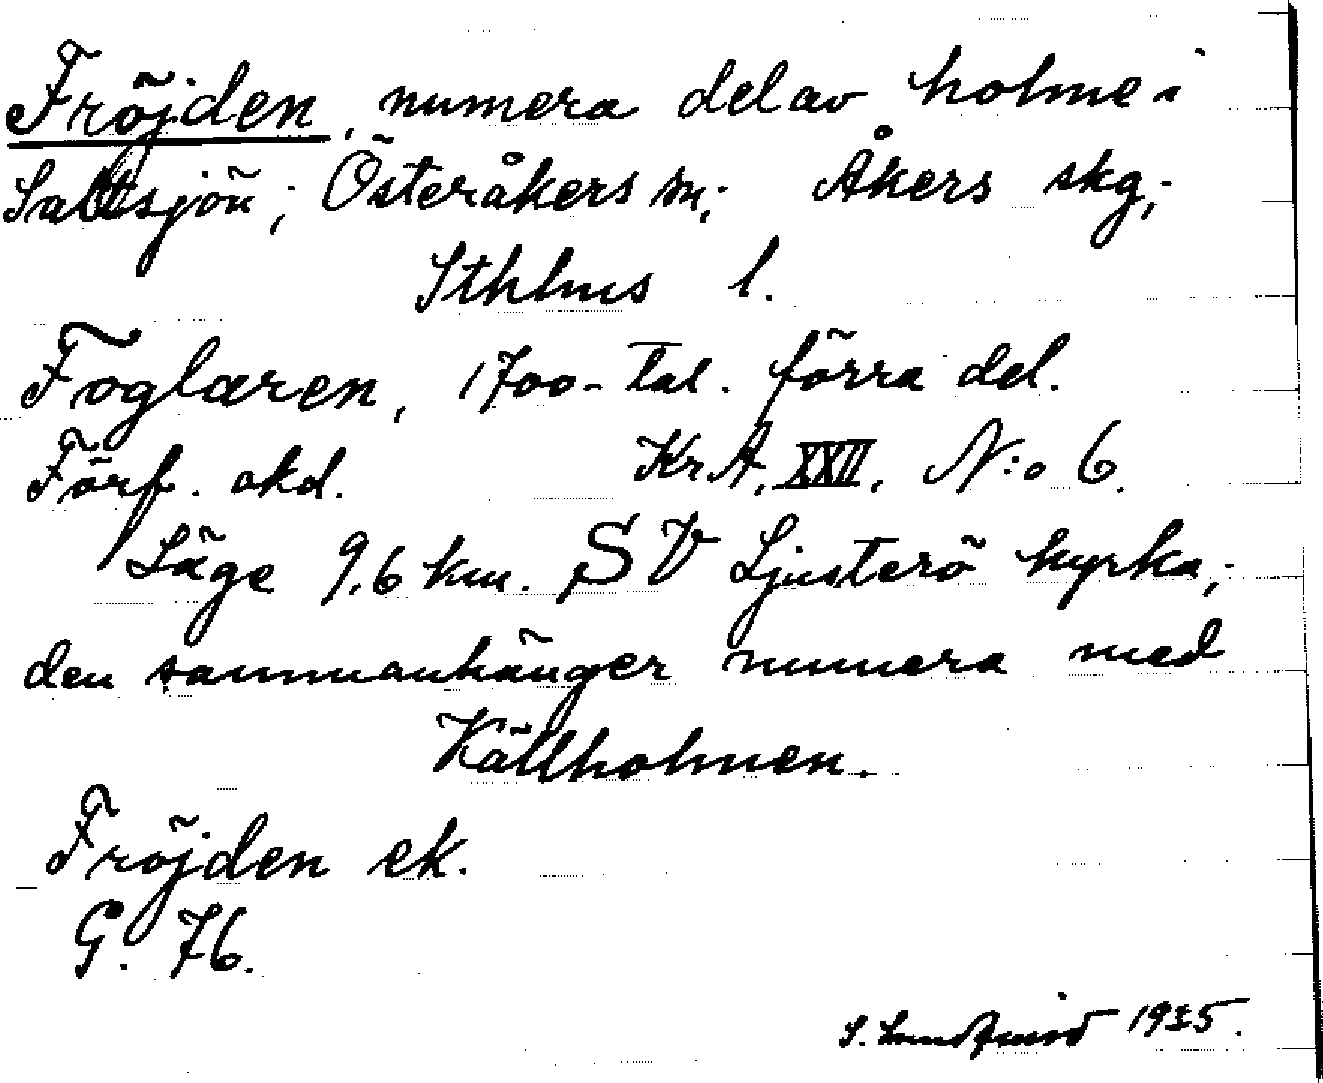 Fröjden, numera del av holme i
Saltsjön, Österåkers sn, Åkers skg,
Sthlms l.
Foglaren, 1700-tal. förra del.
Förf. okd. Kr A. XXII. N:o 6.
Läge 9,6 km. SV Ljusterö kyrka,
den sammanhänger numera med
Källholmen.
Fröjden ek.
G. 76.
S. Lundqvist 1935.